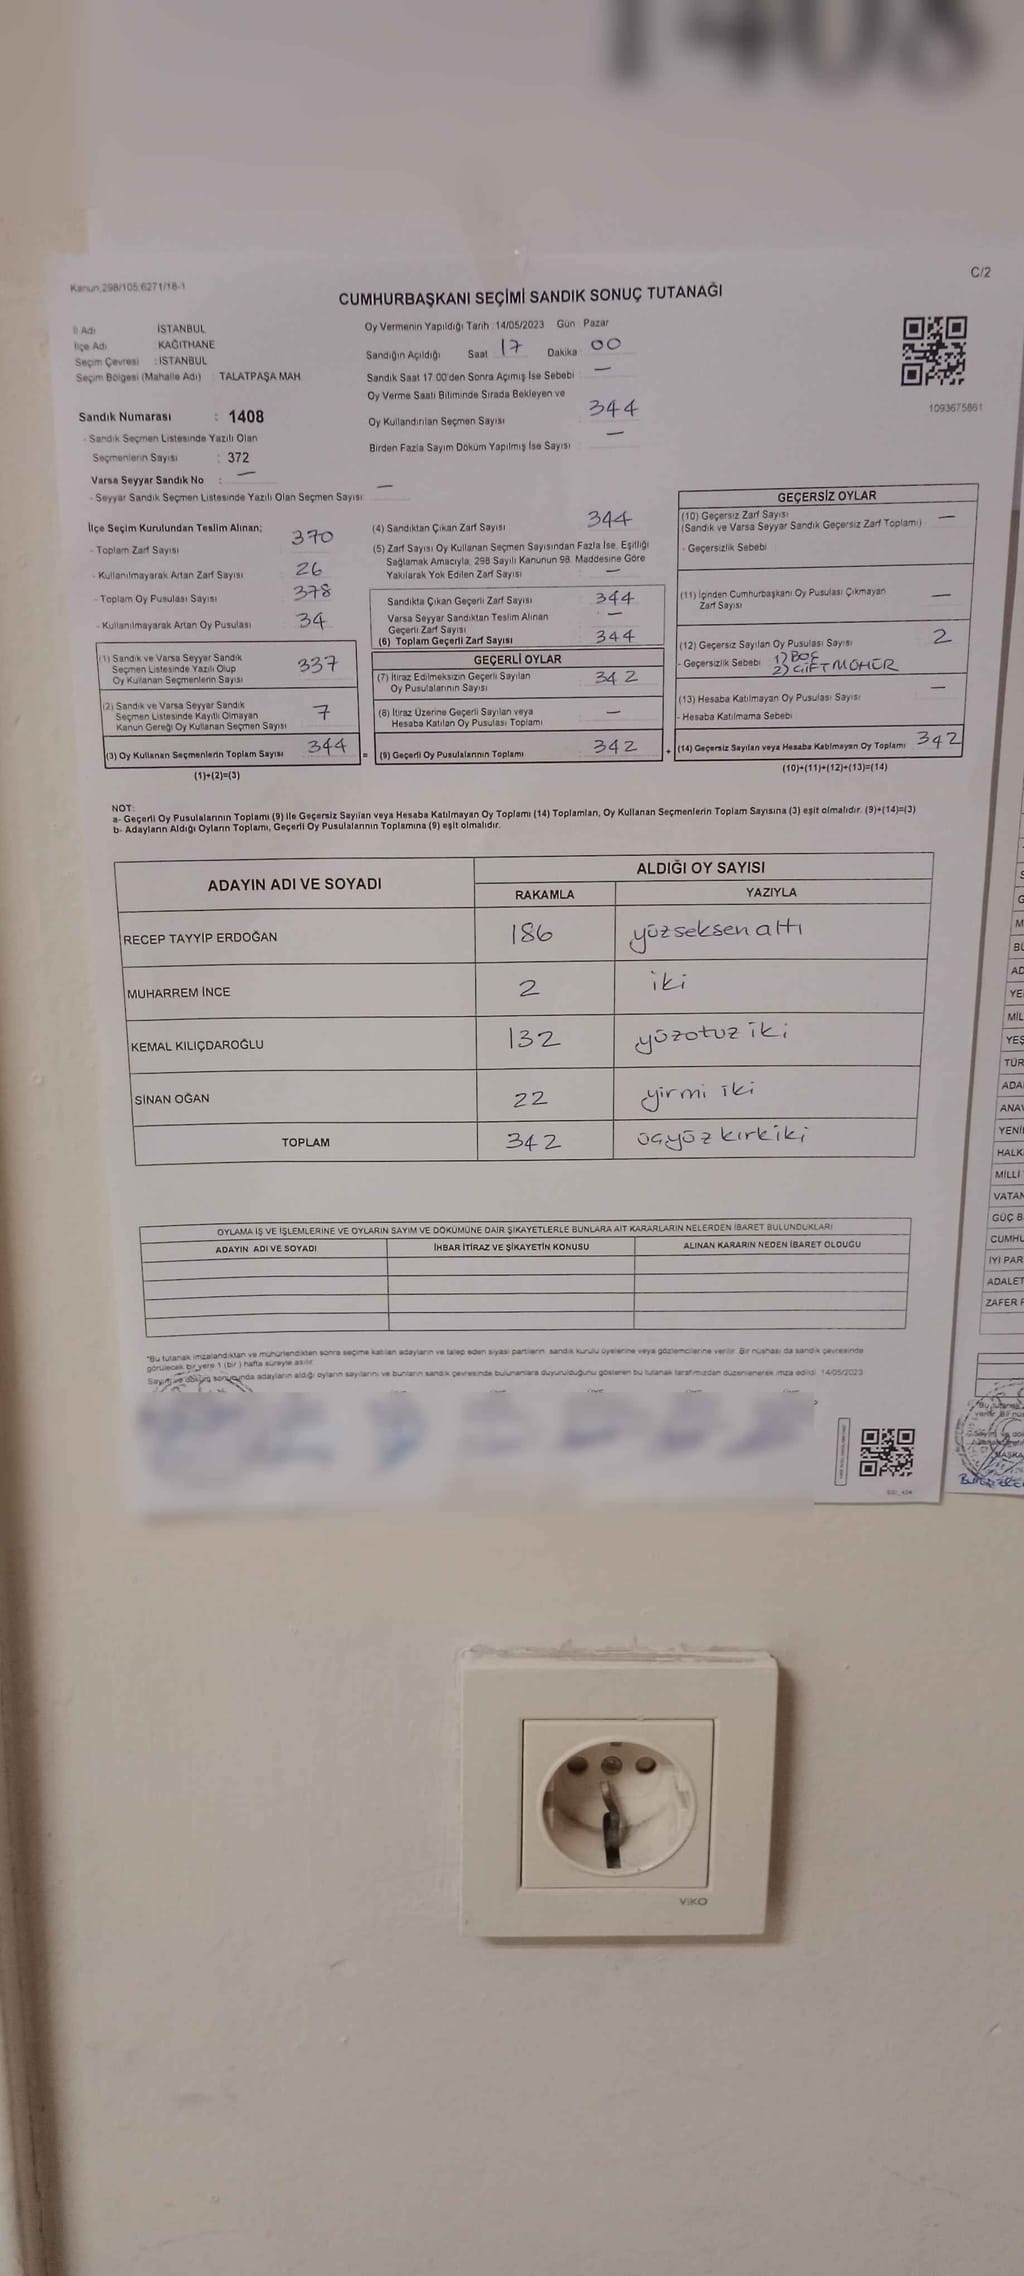 1408
Kanun:298/105:6271/18-1
C/2
CUMHURBAŞKANI SEÇİMİ SANDIK SONUÇ TUTANAĞI
İl Adı İSTANBUL
İlçe Adı KAĞITHANE
Seçim Çevresi : İSTANBUL
Seçim Bölgesi (Mahalle Adı) : TALATPAŞA MAH.
Sandık Numarası : 1408
- Sandık Seçmen Listesinde Yazılı Olan
Seçmenlerin Sayısı : 372
Varsa Seyyar Sandık No : —
- Seyyar Sandık Seçmen Listesinde Yazılı Olan Seçmen Sayısı —
Oy Vermenin Yapıldığı Tarih : 14/05/2023 Gün : Pazar
Sandığın Açıldığı Saat 17 Dakika 00
Sandık Saat 17:00'den Sonra Açımış İse Sebebi —
Oy Verme Saati Bitiminde Sırada Bekleyen ve
Oy Kullandırılan Seçmen Sayısı 344
Birden Fazla Sayım Döküm Yapılmış İse Sayısı —
1093675861
İlçe Seçim Kurulundan Teslim Alınan;
- Toplam Zarf Sayısı 370
- Kullanılmayarak Artan Zarf Sayısı 26
- Toplam Oy Pusulası Sayısı 378
- Kullanılmayarak Artan Oy Pusulası 34
(1) Sandık ve Varsa Seyyar Sandık
Seçmen Listesinde Yazılı Olup
Oy Kullanan Seçmenlerin Sayısı 337
(2) Sandık ve Varsa Seyyar Sandık
Seçmen Listesinde Kayıtlı Olmayan
Kanun Gereği Oy Kullanan Seçmen Sayısı 7
(3) Oy Kullanan Seçmenlerin Toplam Sayısı 344
(1)+(2)=(3)
=
(4) Sandıktan Çıkan Zarf Sayısı 344
(5) Zarf Sayısı Oy Kullanan Seçmen Sayısından Fazla İse, Eşitliği
Sağlamak Amacıyla, 298 Sayılı Kanunun 98. Maddesine Göre
Yakılarak Yok Edilen Zarf Sayısı —
Sandıkta Çıkan Geçerli Zarf Sayısı 344
Varsa Seyyar Sandıktan Teslim Alınan
Geçerli Zarf Sayısı —
(6) Toplam Geçerli Zarf Sayısı 344
GEÇERLİ OYLAR
(7) İtiraz Edilmeksizin Geçerli Sayılan
Oy Pusulalarının Sayısı 342
(8) İtiraz Üzerine Geçerli Sayılan veya
Hesaba Katılan Oy Pusulası Toplamı —
(9) Geçerli Oy Pusulalarının Toplamı 342
+
GEÇERSİZ OYLAR
(10) Geçersiz Zarf Sayısı
(Sandık ve Varsa Seyyar Sandık Geçersiz Zarf Toplamı) —
- Geçersizlik Sebebi
(11) İçinden Cumhurbaşkanı Oy Pusulası Çıkmayan
Zarf Sayısı —
(12) Geçersiz Sayılan Oy Pusulası Sayısı 2
- Geçersizlik Sebebi 1) BOŞ
2) ÇİFT MÜHÜR
(13) Hesaba Katılmayan Oy Pusulası Sayısı —
- Hesaba Katılmama Sebebi
(14) Geçersiz Sayılan veya Hesaba Katılmayan Oy Toplamı 342
(10)+(11)+(12)+(13)=(14)
NOT:
a- Geçerli Oy Pusulalarının Toplamı (9) ile Geçersiz Sayılan veya Hesaba Katılmayan Oy Toplamı (14) Toplamları, Oy Kullanan Seçmenlerin Toplam Sayısına (3) eşit olmalıdır. (9)+(14)=(3)
b- Adayların Aldığı Oyların Toplamı, Geçerli Oy Pusulalarının Toplamına (9) eşit olmalıdır.
ADAYIN ADI VE SOYADI ALDIĞI OY SAYISI
RAKAMLA YAZIYLA
RECEP TAYYİP ERDOĞAN 186 yüzseksen altı
MUHARREM İNCE 2 iki
KEMAL KILIÇDAROĞLU 132 yüzotuz iki
SİNAN OĞAN 22 yirmi iki
TOPLAM 342 üçyüz kırkiki
OYLAMA İŞ VE İŞLEMLERİNE VE OYLARIN SAYIM VE DÖKÜMÜNE DAİR ŞİKAYETLERLE BUNLARA AİT KARARLARIN NELERDEN İBARET BULUNDUKLARI
ADAYIN ADI VE SOYADI İHBAR İTİRAZ VE ŞİKAYETİN KONUSU ALINAN KARARIN NEDEN İBARET OLDUĞU
*Bu tutanak imzalandıktan ve mühürlendikten sonra seçime katılan adayların ve talep eden siyasi partilerin sandık kurulu üyelerine veya gözlemcilerine verilir. Bir nüshası da sandık çevresinde
görülecek bir yere 1 (bir) hafta süreyle asılır.
Sayım ve döküm sonucunda adayların aldığı oyların sayılarını ve bunların sandık çevresinde bulunanlara duyurulduğunu gösteren bu tutanak tarafımızdan düzenlenerek imza edildi. 14/05/2023
YENİ
HALK
MİLLİ
VATAN
GÜÇ B
CUMHU
İYİ PAR
ADALET
ZAFER P
VİKO